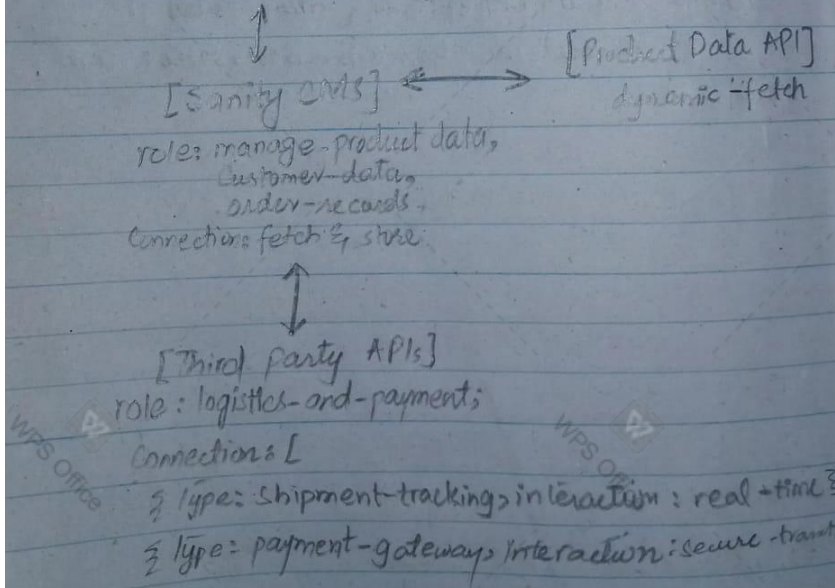 [Product Data API]
[Sanity CMS]
dynamic-fetch
role: manage-product data,
customer-data,
order-records.
Connection: fetch & store
[Third party APIs]
role: logistics-and-payment;
Connection: [
{ type: shipment-tracking, interaction: real-time }
{ type: payment-gateway, interaction: secure-
WPS Office
WPS Office